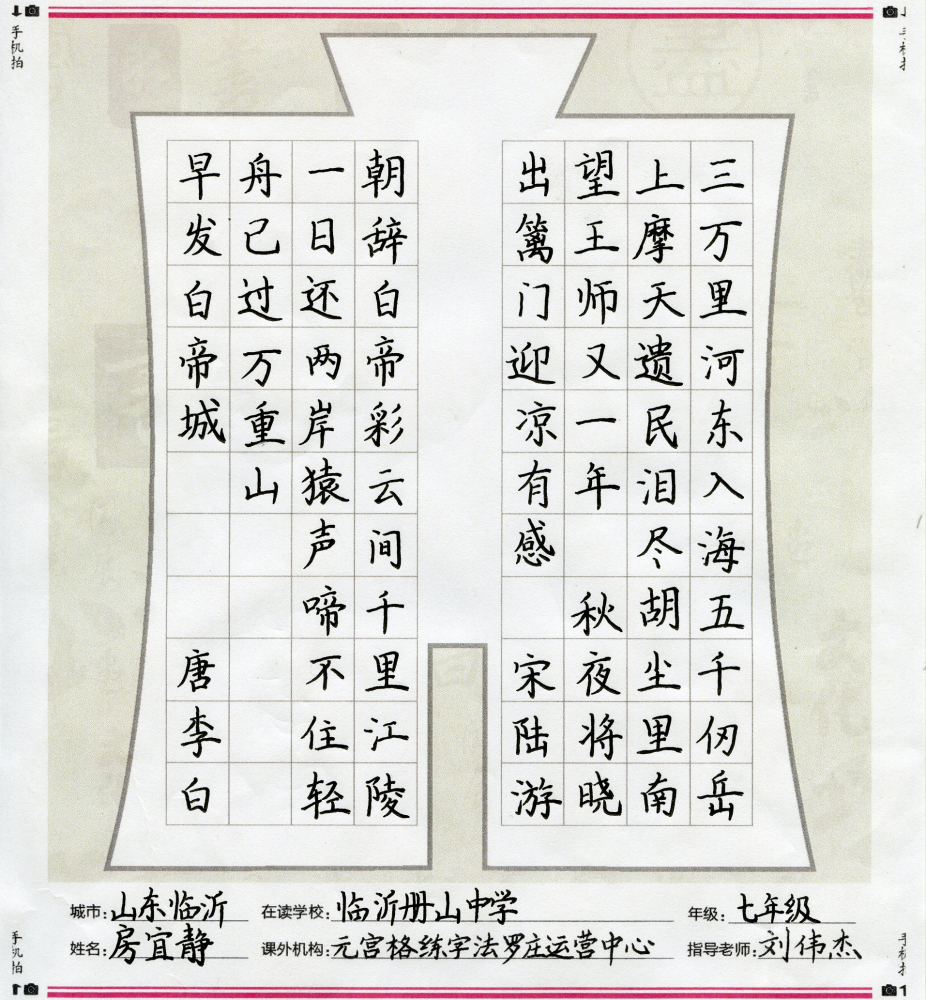 手机拍
手机拍
三万里河东入海五千仞岳
上摩天遗民泪尽胡尘里南
望王师又一年 秋夜将晓
出篱门迎凉有感 宋陆游
朝辞白帝彩云间千里江陵
一日还两岸猿声啼不住轻
舟已过万重山
早发白帝城 唐李白
城市:山东临沂 在读学校:临沂册山中学 年级:七年级
姓名:房宜静 课外机构:元宫格练字法罗庄运营中心 指导老师:刘伟杰
手机拍
手机拍